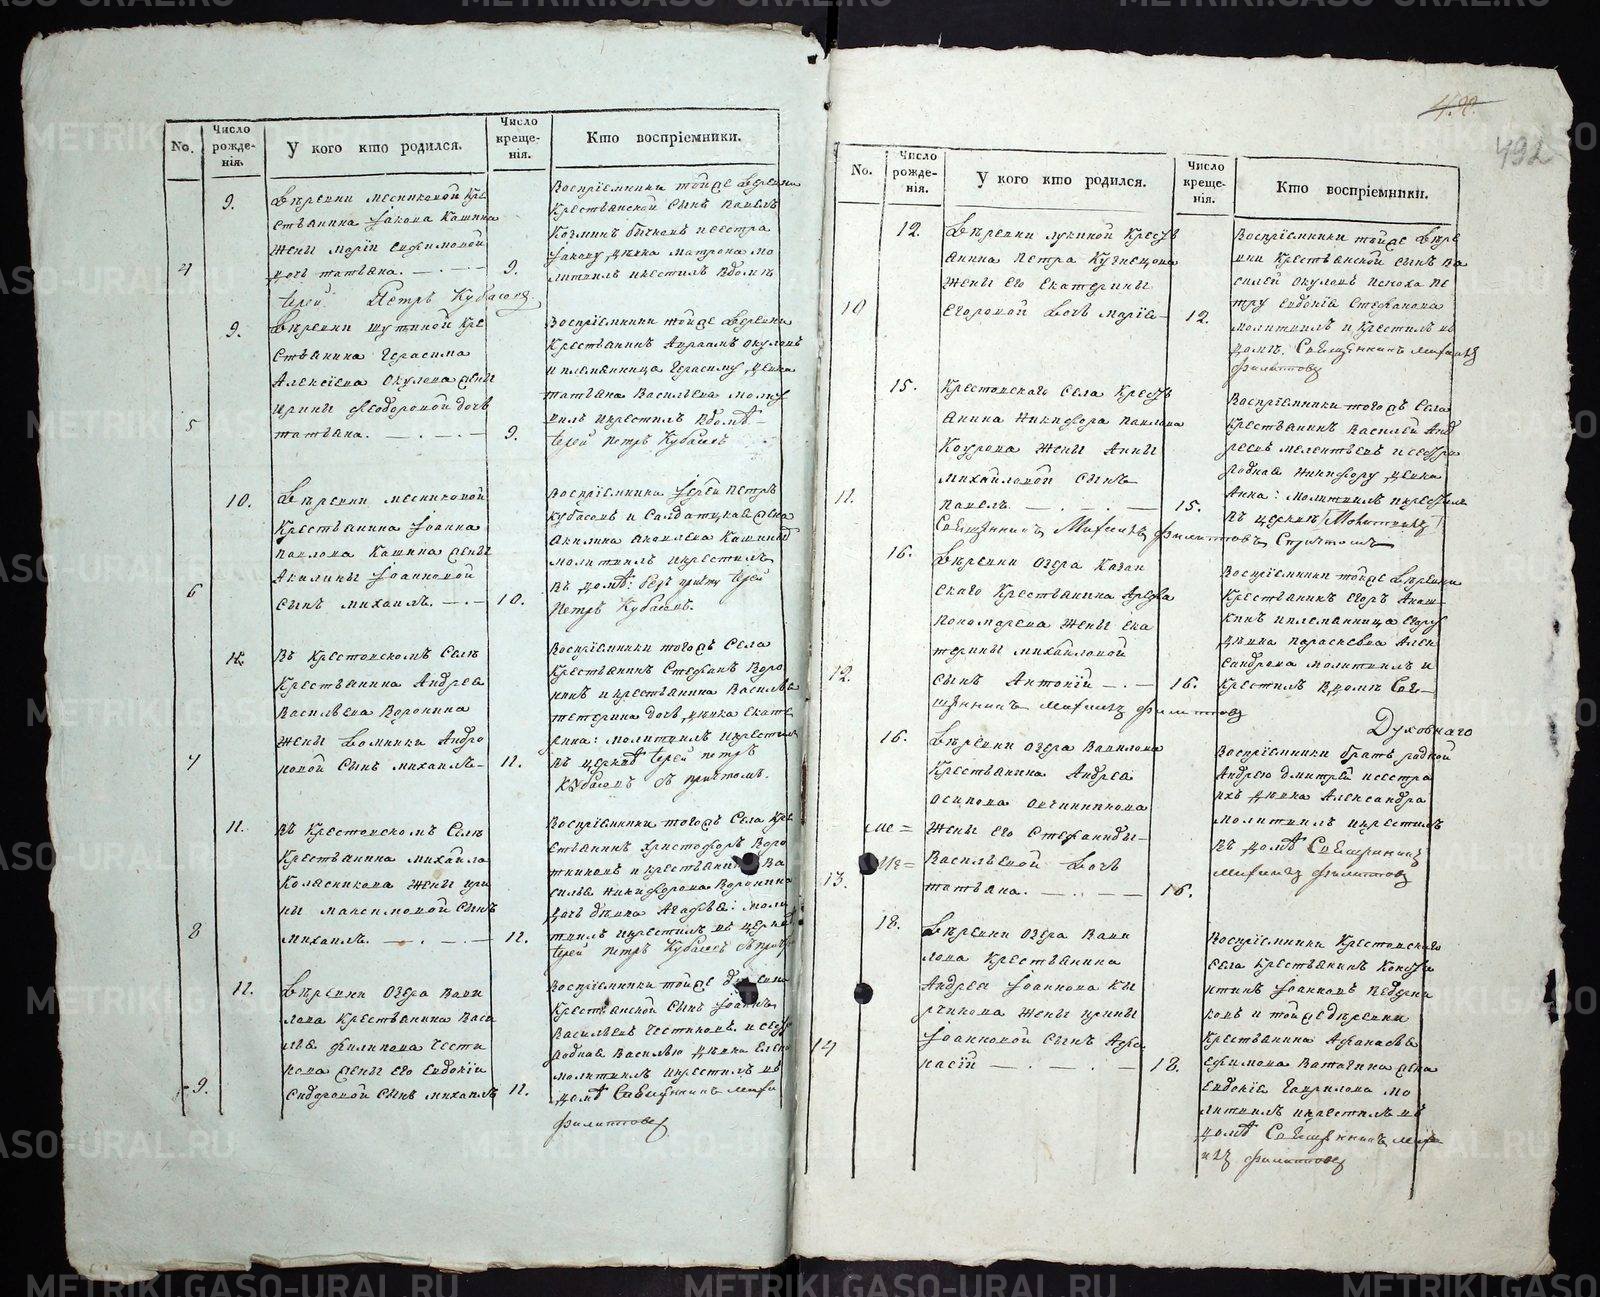 No.
Число рожде-нія.
У кого кто родился.
Число креще-нія.
Кто воспріемники.
9.
деревни месниковой кре
стьянина Іакова Кашина
жены маріи ефимовой
4
дочь татьяна.
9.
воспріемники тойже деревни
крестьянской сынъ павелъ
козминъ и сестра
Іакову девка матрона мо
литвилъ и крестилъ вдоме
Іерей Петръ Кубасовъ
9.
деревни шутиной кре
стьянина герасима
Алексіева окулова жены
ирины феодоровой дочь
5
татьяна.
9.
воспріемники тойже деревни
крестьянинъ Авраамъ окуловъ
и племянница герасиму девка
татьяна васильева молит
вилъ и крестилъ вдоме
Іерей Петръ Кубасовъ
10.
деревни месниковой
крестьянина Іоанна
павлова кашина жены
акилины Іоанновой
6
сынъ михаилъ.
10.
воспріемники Іерей Петръ
кубасовъ и салдатская жена
акилина яковлева кашина
молитвилъ и крестилъ
въ доме: безъ причту Іерей
Петръ Кубасовъ.
11.
въ крестовскомъ селе
крестьянина андрея
васильева воронина
жены домники андре
7
новой сынъ михаилъ
11.
воспріемники тогожъ села
крестьянинъ Стефанъ воро
нинъ и крестьянина василья
тетерина дочь девка екате
рина: молитвилъ и крестилъ
въ церкве Іерей петръ
Кубасовъ съ причтомъ.
11.
въ крестовскомъ селе
крестьянина михайла
колясникова жены ири
ны максимовой сынъ
8
михаилъ.
11.
воспріемники тогожъ села кре
стьянинъ христофоръ воро
тниковъ и крестьянина ва
силья никифорова воронина
дочь девка агафья: моли
твилъ и крестилъ въ церкве
Іерей Петръ Кубасовъ съ причт
11.
деревни озера вави
лова крестьянина васи
лья филипова чести
кова жены его евдокіи
9.
сидоровой сынъ михаилъ
11.
воспріемники тойже деревни
крестьянской сынъ Іоаннъ
васильевъ честиковъ и сест
родная василью девка елена
молитвилъ и крестилъ въ
доме Священникъ миха
филиповъ
492
No.
Число рожде-нія.
У кого кто родился.
Число креще-нія.
Кто воспріемники.
12.
деревни лукиной крест
янина петра кузнецова
жены его екатерины
10
егоровой дочь марія
12.
воспріемники тойже дере
вни крестьянской сынъ ва
силей окуловъ и сноха пе
тру евдокія стефанова
молитвилъ и крестилъ въ
доме. Священникъ михаилъ
филиповъ
15.
крестовскаго села крест
янина никифора павлова
коурова жены анны
михайловой сынъ
11.
павелъ.
15.
воспріемники тогожъ села
крестьянинъ василей анд
реевъ мелентьевъ и сестра
родная никифору девка
анна: молитвилъ и крестилъ
въ церкви
Священникъ Михаилъ филиповъ Спричтомъ
16.
деревни озера казан
скаго крестьянина арефа
пономарева жены ека
терины михайловой
12.
сынъ антоній
16.
воспріемники тойже деревни
крестьянинъ егоръ
кинъ и племянница егору
девка парасковья алек
сандрова молитвилъ и
крестилъ вдоме свя
щенникъ михаилъ филиповъ
Духовнаго
16.
деревни озера вавилова
крестьянина андрея
осипова овчинникова
жены его стефаниды
васильевой дочь
13.
татьяна.
16.
воспріемники братъ родной
андрею дмитрей и сестра
ихъ девка александра
молитвилъ и крестилъ
въ доме Священникъ
михаилъ филиповъ
18.
деревни озера вави
лова крестьянина
андрея Іоаннова ки
рчикова жены ирины
14
Іоанновой сынъ афа
насій
18.
воспріемники крестовскаго
села крестьянинъ конста
нтинъ Іоанновъ
ковъ и тойже деревни
крестьянина афанасья
ефимова ватагина жена
евдокія гаврилова мо
литвилъ и крестилъ въ
доме Священникъ миха
илъ филиповъ
METRIKI.GASO-URAL.RU